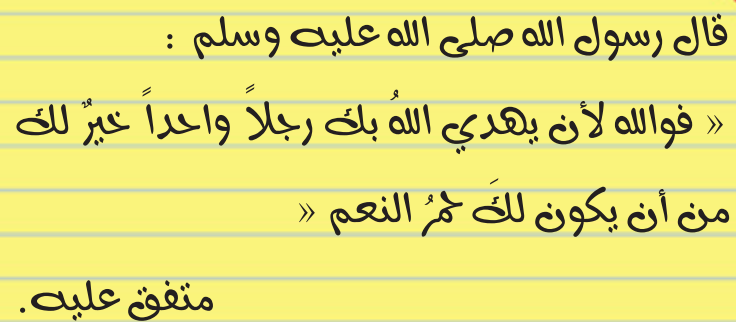 قال رسول الله صلى الله عليه وسلم :
» فوالله لأن يهدي اللهُ بك رجلاً واحداً خيرٌ لك
من أن يكون لكَ حمرُ النعم «
متفق عليه.